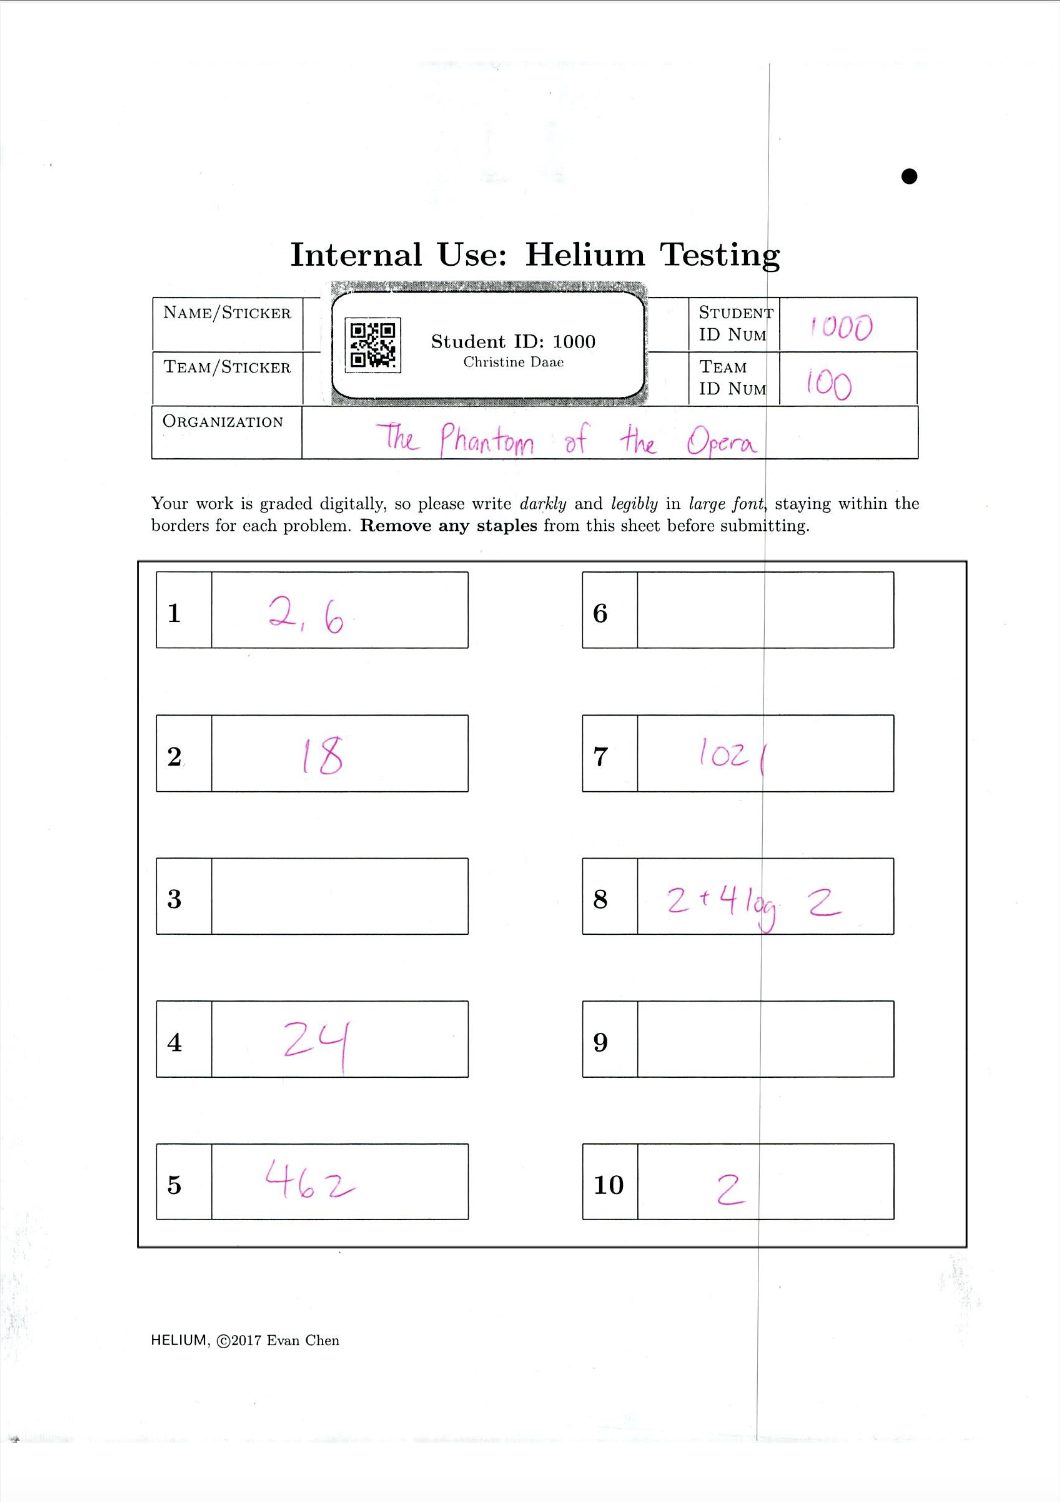 Internal Use: Helium Testing
NAME/STICKER
Student ID: 1000
Christine Daae
STUDENT ID NUM 1000
TEAM/STICKER
TEAM ID NUM 100
ORGANIZATION The Phantom of the Opera
Your work is graded digitally, so please write darkly and legibly in large font, staying within the
borders for each problem. Remove any staples from this sheet before submitting.
1 2, 6
6
2 18
7 1021
3
8 2+4 log 2
4 24
9
5 462
10 2
HELIUM, ©2017 Evan Chen